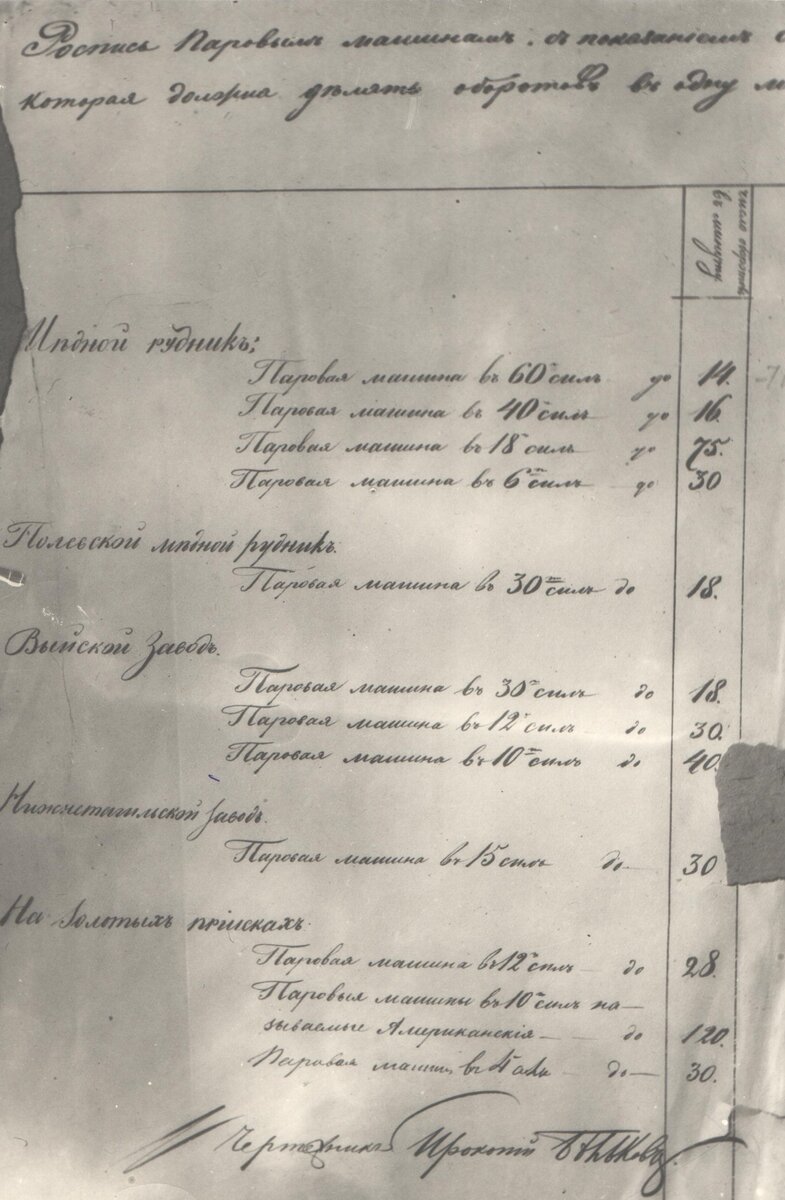 Роспись Паровымъ машинамъ, съ показаніемъ
которая должна дѣлать оборотовъ въ одну
число оборотовъ
въ минуту
Мѣдной рудникъ:
Паровая машина въ 60 силъ до 14.
Паровая машина въ 40 силъ до 16.
Паровая машина въ 18 силъ до 75.
Паровая машина въ 6 силъ до 30
Полевской мѣдной рудникъ.
Паровая машина въ 30 силъ до 18.
Выйской Заводъ.
Паровая машина въ 30 силъ до 18.
Паровая машина въ 12 силъ до 30.
Паровая машина въ 10 силъ до 40.
Нижнетагильской заводъ.
Паровая машина въ 15 силъ до 30
На Золотыхъ пріискахъ.
Паровая машина въ 12 силъ — до 28.
Паровыя машины въ 10 силъ на—
зываемые Американскія — — до 120.
Паровая машина въ 4 силы — до — 30.
Чертежникъ Прокопій